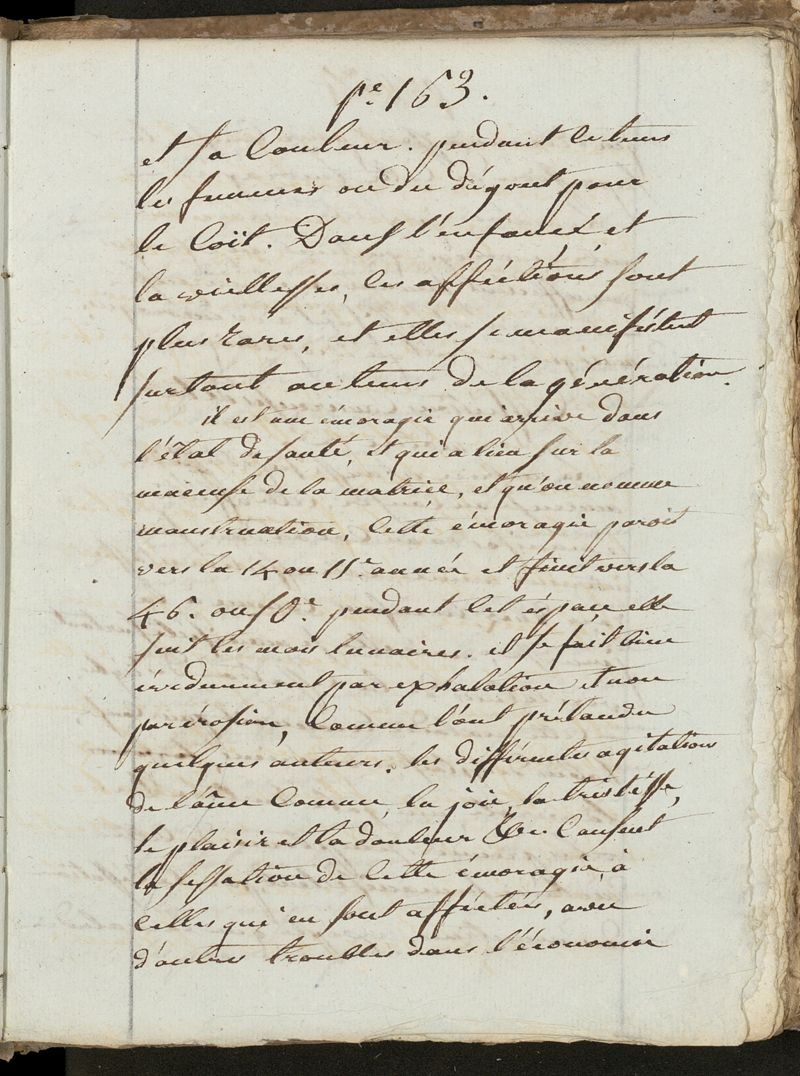 pe. 163.
et sa Couleur. pendant ce tems
les femmes on du dégout pour
le Coït. Dans l'enfance et
la vieillesses, les afféctions sont
plus rares, et elles se manifestent
surtout au tems de la génération.
il est une émoragie qui arrive dans
l'état de santé, et qui a lieu sur la
de la matrice, et qu'on nomme
manstruation, Cette émoragie paroit
vers la 14 ou 15e. année et finit vers la
46. ou 50e. pendant Cet éspace elle
suit les mois lunaires. et se fait bien
évidemment par exhalation et non
par érosion, Comme l'ont prétandu
quelques auteurs. les différentes agitations
de l'âme Comme, la joie, la tristésse,
le plaisir et la douleur &c. Causent
la sessation de Cette émoragie, à
Celles qui en sont afféctées, avec
d'autres troubles dans l'économie